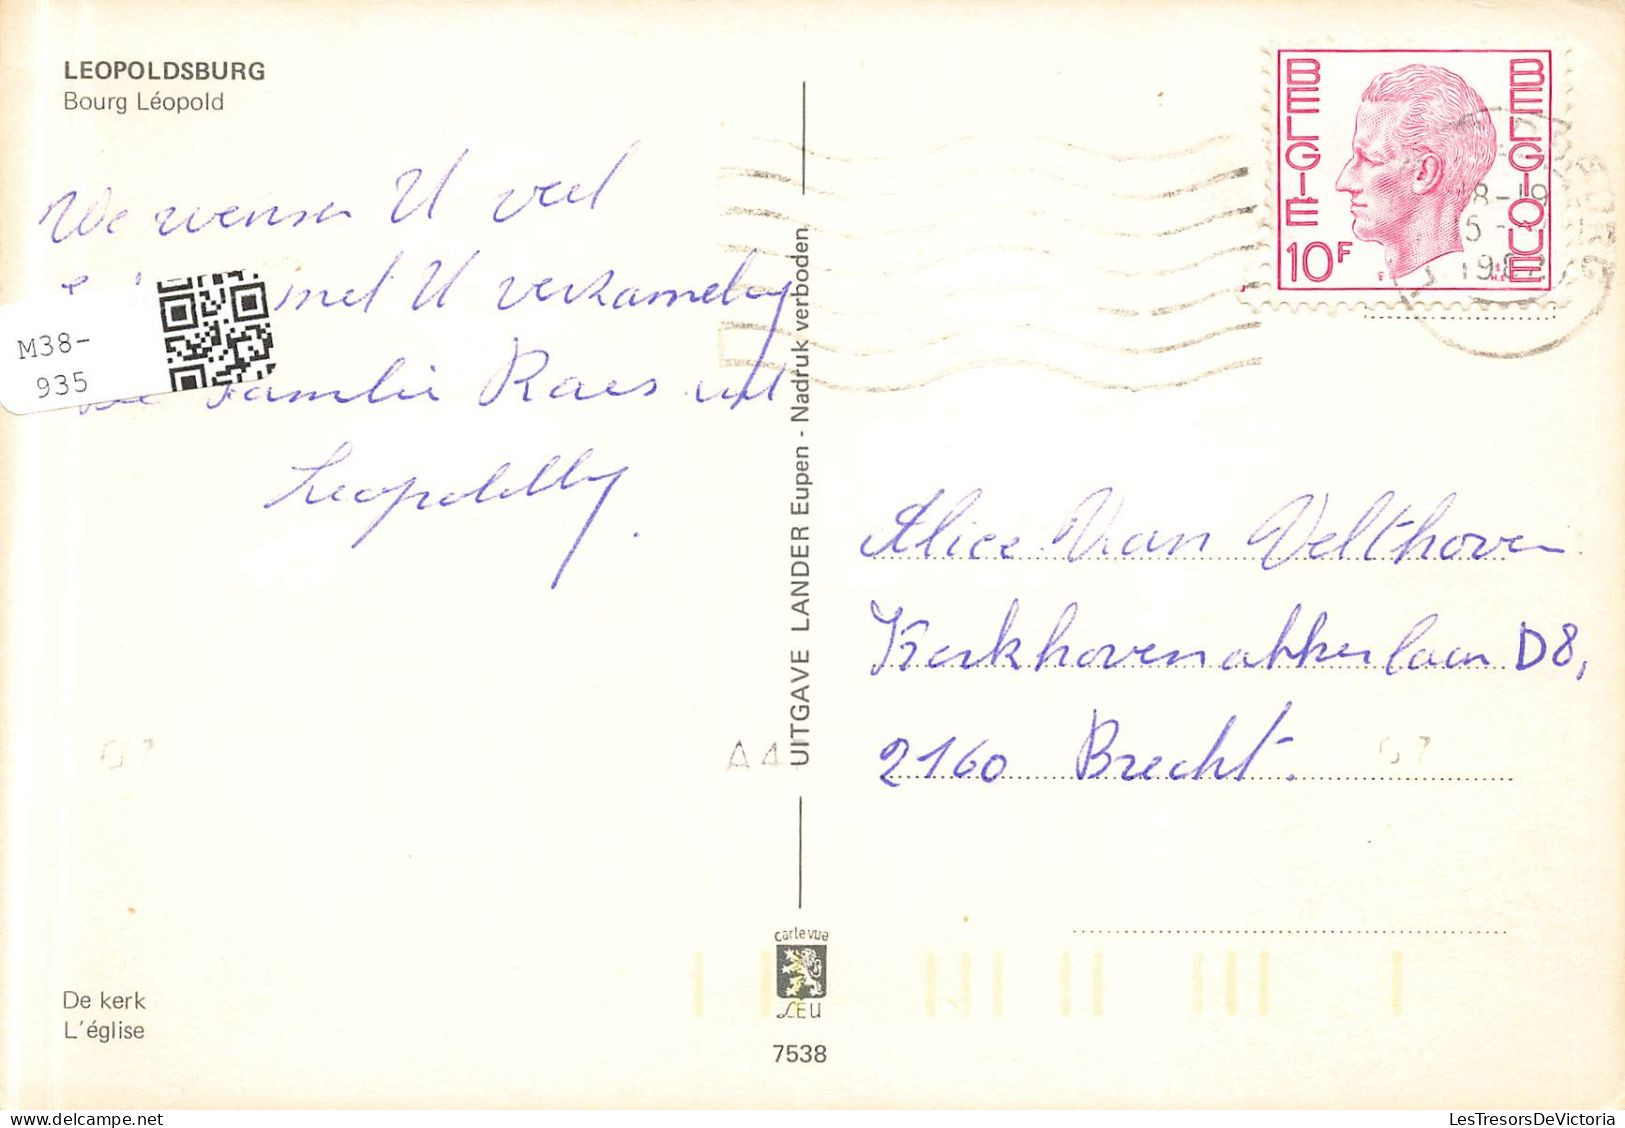 LEOPOLDSBURG
Bourg Léopold
We wensen U veel
met U verzameling
Familie Raes uit
Leopoldsburg.
M38-
935
BELGIE
BELGIQUE
10F
18-19
UITGAVE LANDER Eupen - Nadruk verboden
Alice Van Velthoven
Kerkhovenakkerlaan D8,
2160 Brecht.
A4
De kerk
L'église
carte vue
LEU
7538
LesTresorsDeVictoria.com